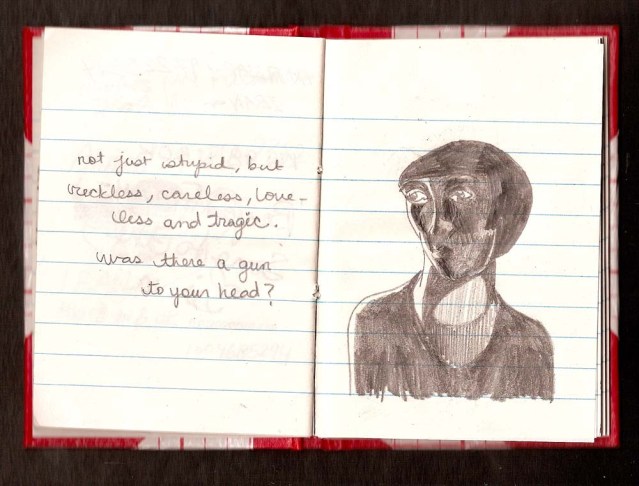 not just stupid, but
reckless, careless, love-
less and tragic.
was there a gun
to your head?